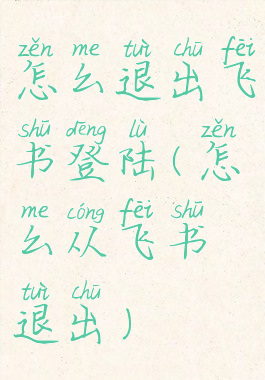 zěn me tuì chū fēi
怎么退出飞
shū dēng lù zěn
书登陆(怎
me cóng fēi shū
么从飞书
tuì chū
退出)